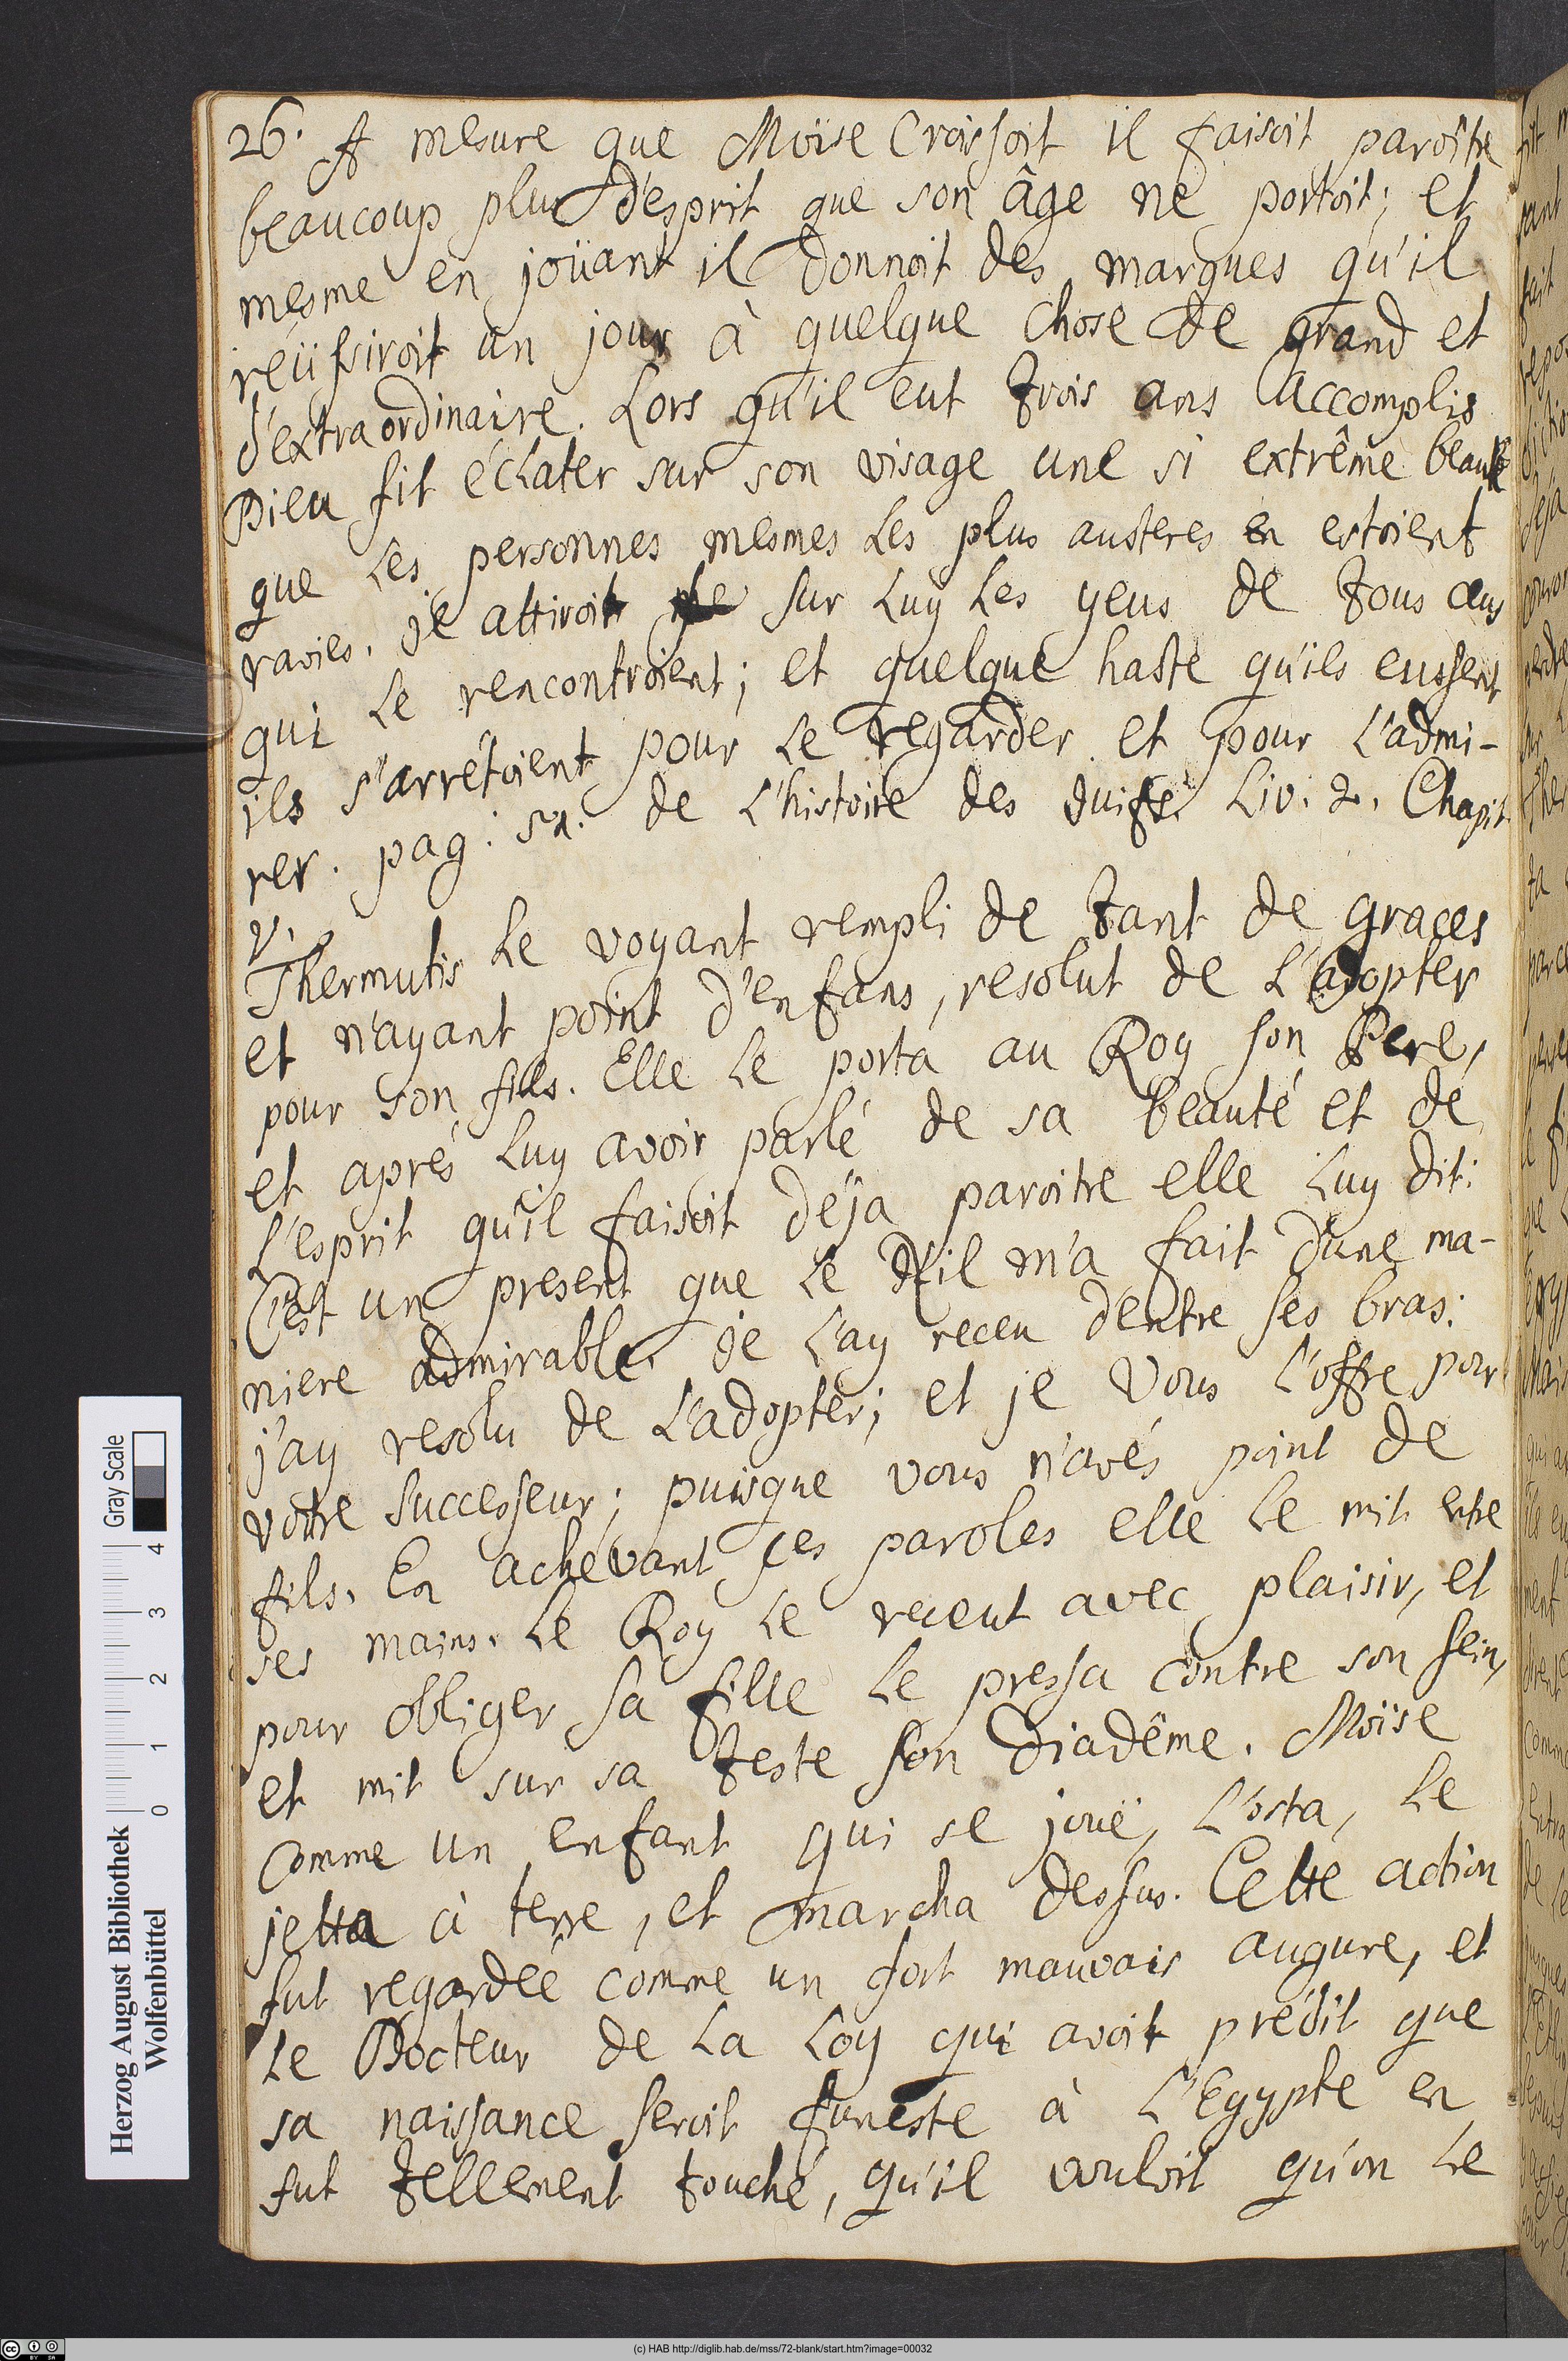 26. A mesure que Moïse Croissoit il faisoit paroître
beaucoup plus d'esprit que son âge ne portoit; et
mesme en joüant il donnoit des marques qu'il
reüssiroit un jour à quelque chose de grand et
d'extraordinaire. Lors qu'il eut trois ans accomplis
Dieu fit éclater sur son visage une si extrême beauté
que les personnes mesmes les plus austeres en estoient
ravies. je attiroit sur luy les yeus de tous ceus
qui le rencontroient; et quelque haste qu'ils eussent
ils s'arrétoient pour le regarder et pour l'admi-
rer. pag: de l'histoire des Juifs. Liv. 2. Chapit.
V.
Thermutis le voyant rempli de tant de graces
et n'ayant point d'enfans, resolut de l'adopter
pour son fils. Elle le porta au Roy son Pere,
et aprés luy avoir parlé de sa beauté et de
l'esprit qu'il faisoit déja paroitre elle luy dit:
C'est un present que le Nil m'a fait d'une ma-
niere admirable. je l'ay receu dentre ses bras:
j'ay resolu de l'adopter; et je vous l'offre pour
votre successeur; puisque vous n'avés point de
fils. En achevant ces paroles elle le mit entre
ses mains. Le Roy le receut avec plaisir, et
pour obliger sa fille le pressa contre son sein,
et mit sur sa teste son Diadême. Moïse
comme un enfant qui se jouë, l'osta, le
jetta à terre, et marcha dessus. Cette action
fut regardée comme un fort mauvais augure, et
le Docteur de la Loy qui avoit prédit que
sa naissance seroit funeste à l'Egypte en
fut tellement touché, qu'il vouloit qu'on le
Gray Scale
0 1 2 3 4
Herzog August Bibliothek
Wolfenbüttel
(c) HAB http://diglib.hab.de/mss/72-blank/start.htm?image=00032